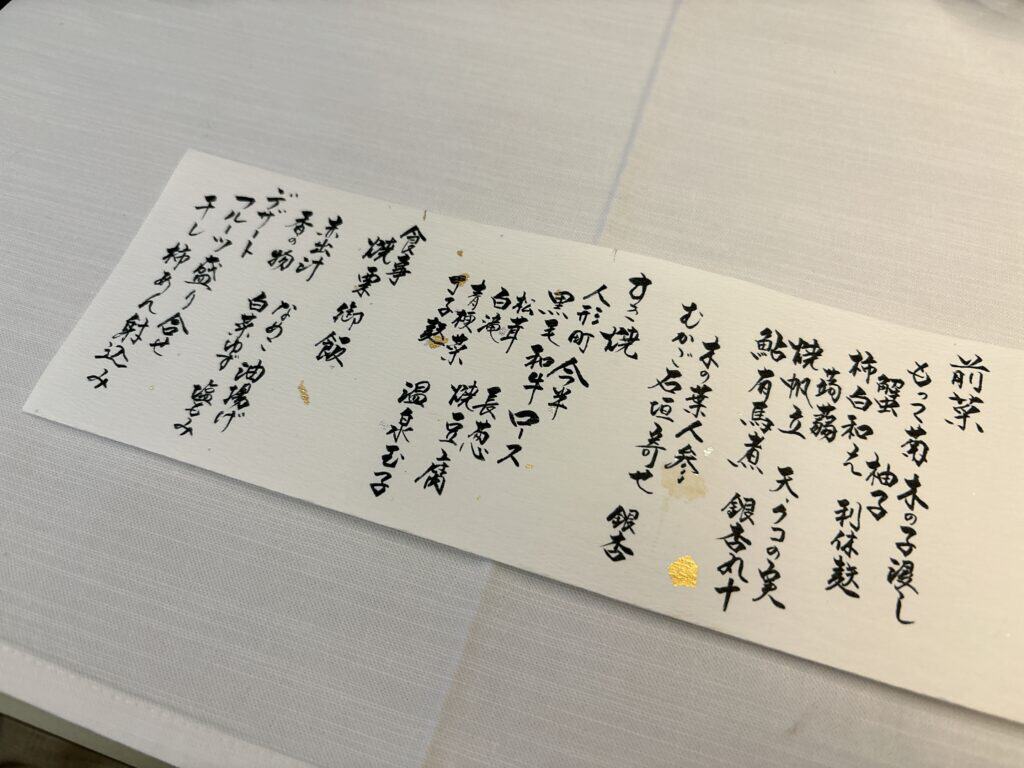 前菜
もって菊 木の子浸し
蟹 柚子
柿白和え 利休麩
蒟蒻
焼帆立 天・クコの実
鮎有馬煮 銀杏丸十
木の葉人参
むかご石垣寄せ 銀杏
すき焼
人形町 今半
黒毛和牛ロース
松茸 長葱
白滝 焼豆腐
青梗菜
甲子麩 温泉玉子
食事
焼栗御飯
赤出汁 なめこ 油揚げ
香の物 白菜ゆず 塩もみ
デザート
フルーツ盛り合せ
干し柿あん射込み